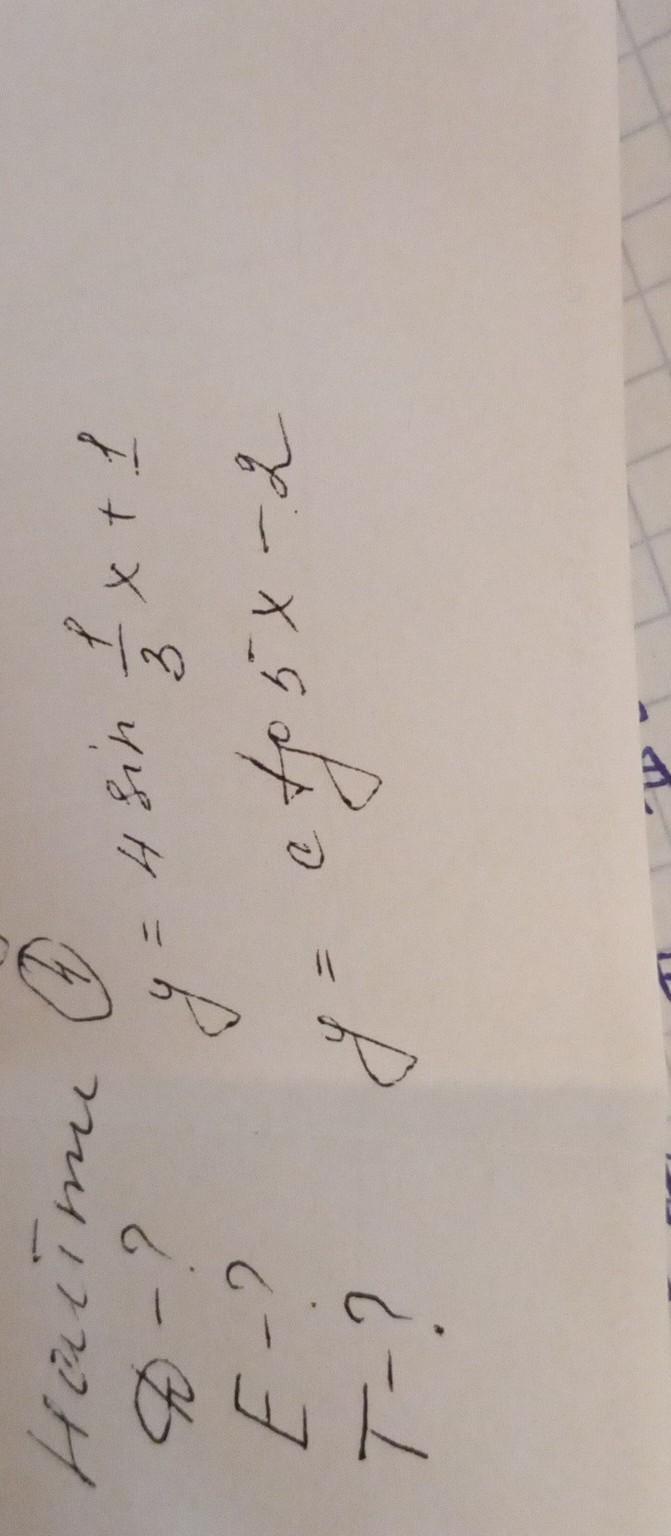 Найти ④
D-? y = 4 sin 1/3 x + 1
E-? y = ctg 5x - 2
T-?